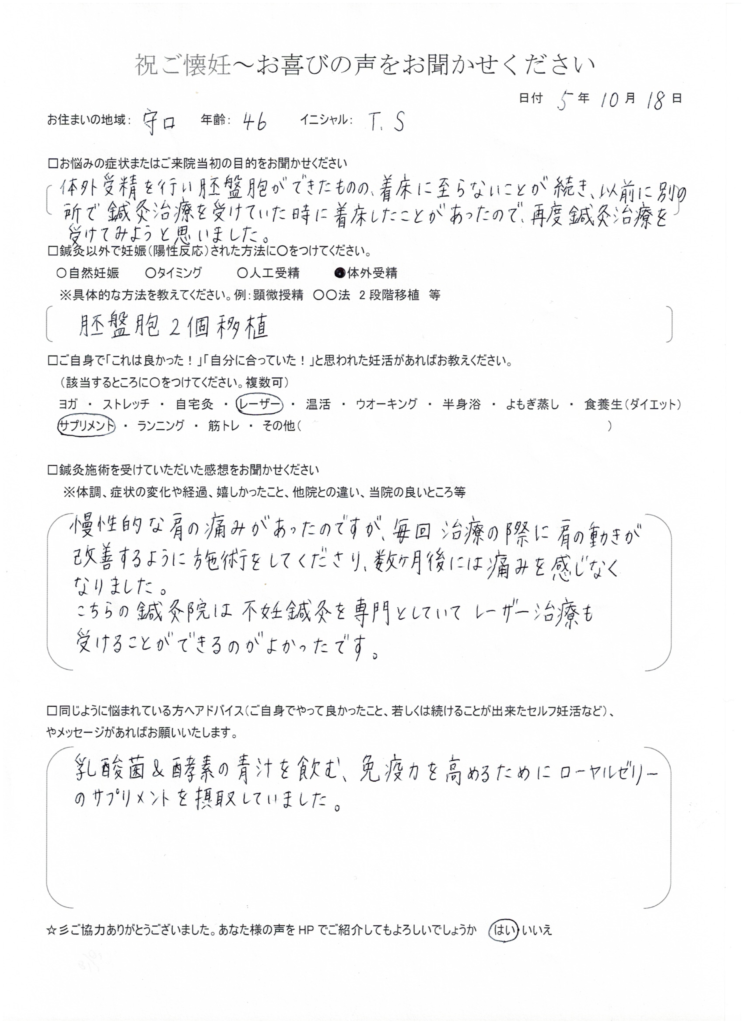 祝ご懐妊～お喜びの声をお聞かせください
日付 5年10月18日
お住まいの地域： 守口 年齢： 46 イニシャル： T.S
□お悩みの症状またはご来院当初の目的をお聞かせください
体外受精を行い胚盤胞ができたものの、着床に至らないことが続き、以前に別の
所で鍼灸治療を受けていた時に着床したことがあったので、再度鍼灸治療を
受けてみようと思いました。
□鍼灸以外で妊娠（陽性反応）された方法に○をつけてください。
○自然妊娠 ○タイミング ○人工受精 ●体外受精
※具体的な方法を教えてください。例：顕微授精 ○○法 2段階移植 等
胚盤胞2個移植
□ご自身で「これは良かった！」「自分に合っていた！」と思われた妊活があればお教えください。
（該当するところに○をつけてください。複数可）
ヨガ ・ ストレッチ ・ 自宅灸 ・ レーザー ・ 温活 ・ ウオーキング ・ 半身浴 ・ よもぎ蒸し ・ 食養生（ダイエット）
サプリメント ・ ランニング ・ 筋トレ ・ その他（ ）
□鍼灸施術を受けていただいた感想をお聞かせください
※体調、症状の変化や経過、嬉しかったこと、他院との違い、当院の良いところ等
慢性的な肩の痛みがあったのですが、毎回治療の際に肩の動きが
改善するように施術をしてくださり、数ヶ月後には痛みを感じなく
なりました。
こちらの鍼灸院は不妊鍼灸を専門としていてレーザー治療も
受けることができるのがよかったです。
□同じように悩まれている方へアドバイス（ご自身でやって良かったこと、若しくは続けることが出来たセルフ妊活など）、
やメッセージがあればお願いいたします。
乳酸菌＆酵素の青汁を飲む、免疫力を高めるためにローヤルゼリー
のサプリメントを摂取していました。
☆彡ご協力ありがとうございました。あなた様の声をHPでご紹介してもよろしいでしょうか はい・いいえ